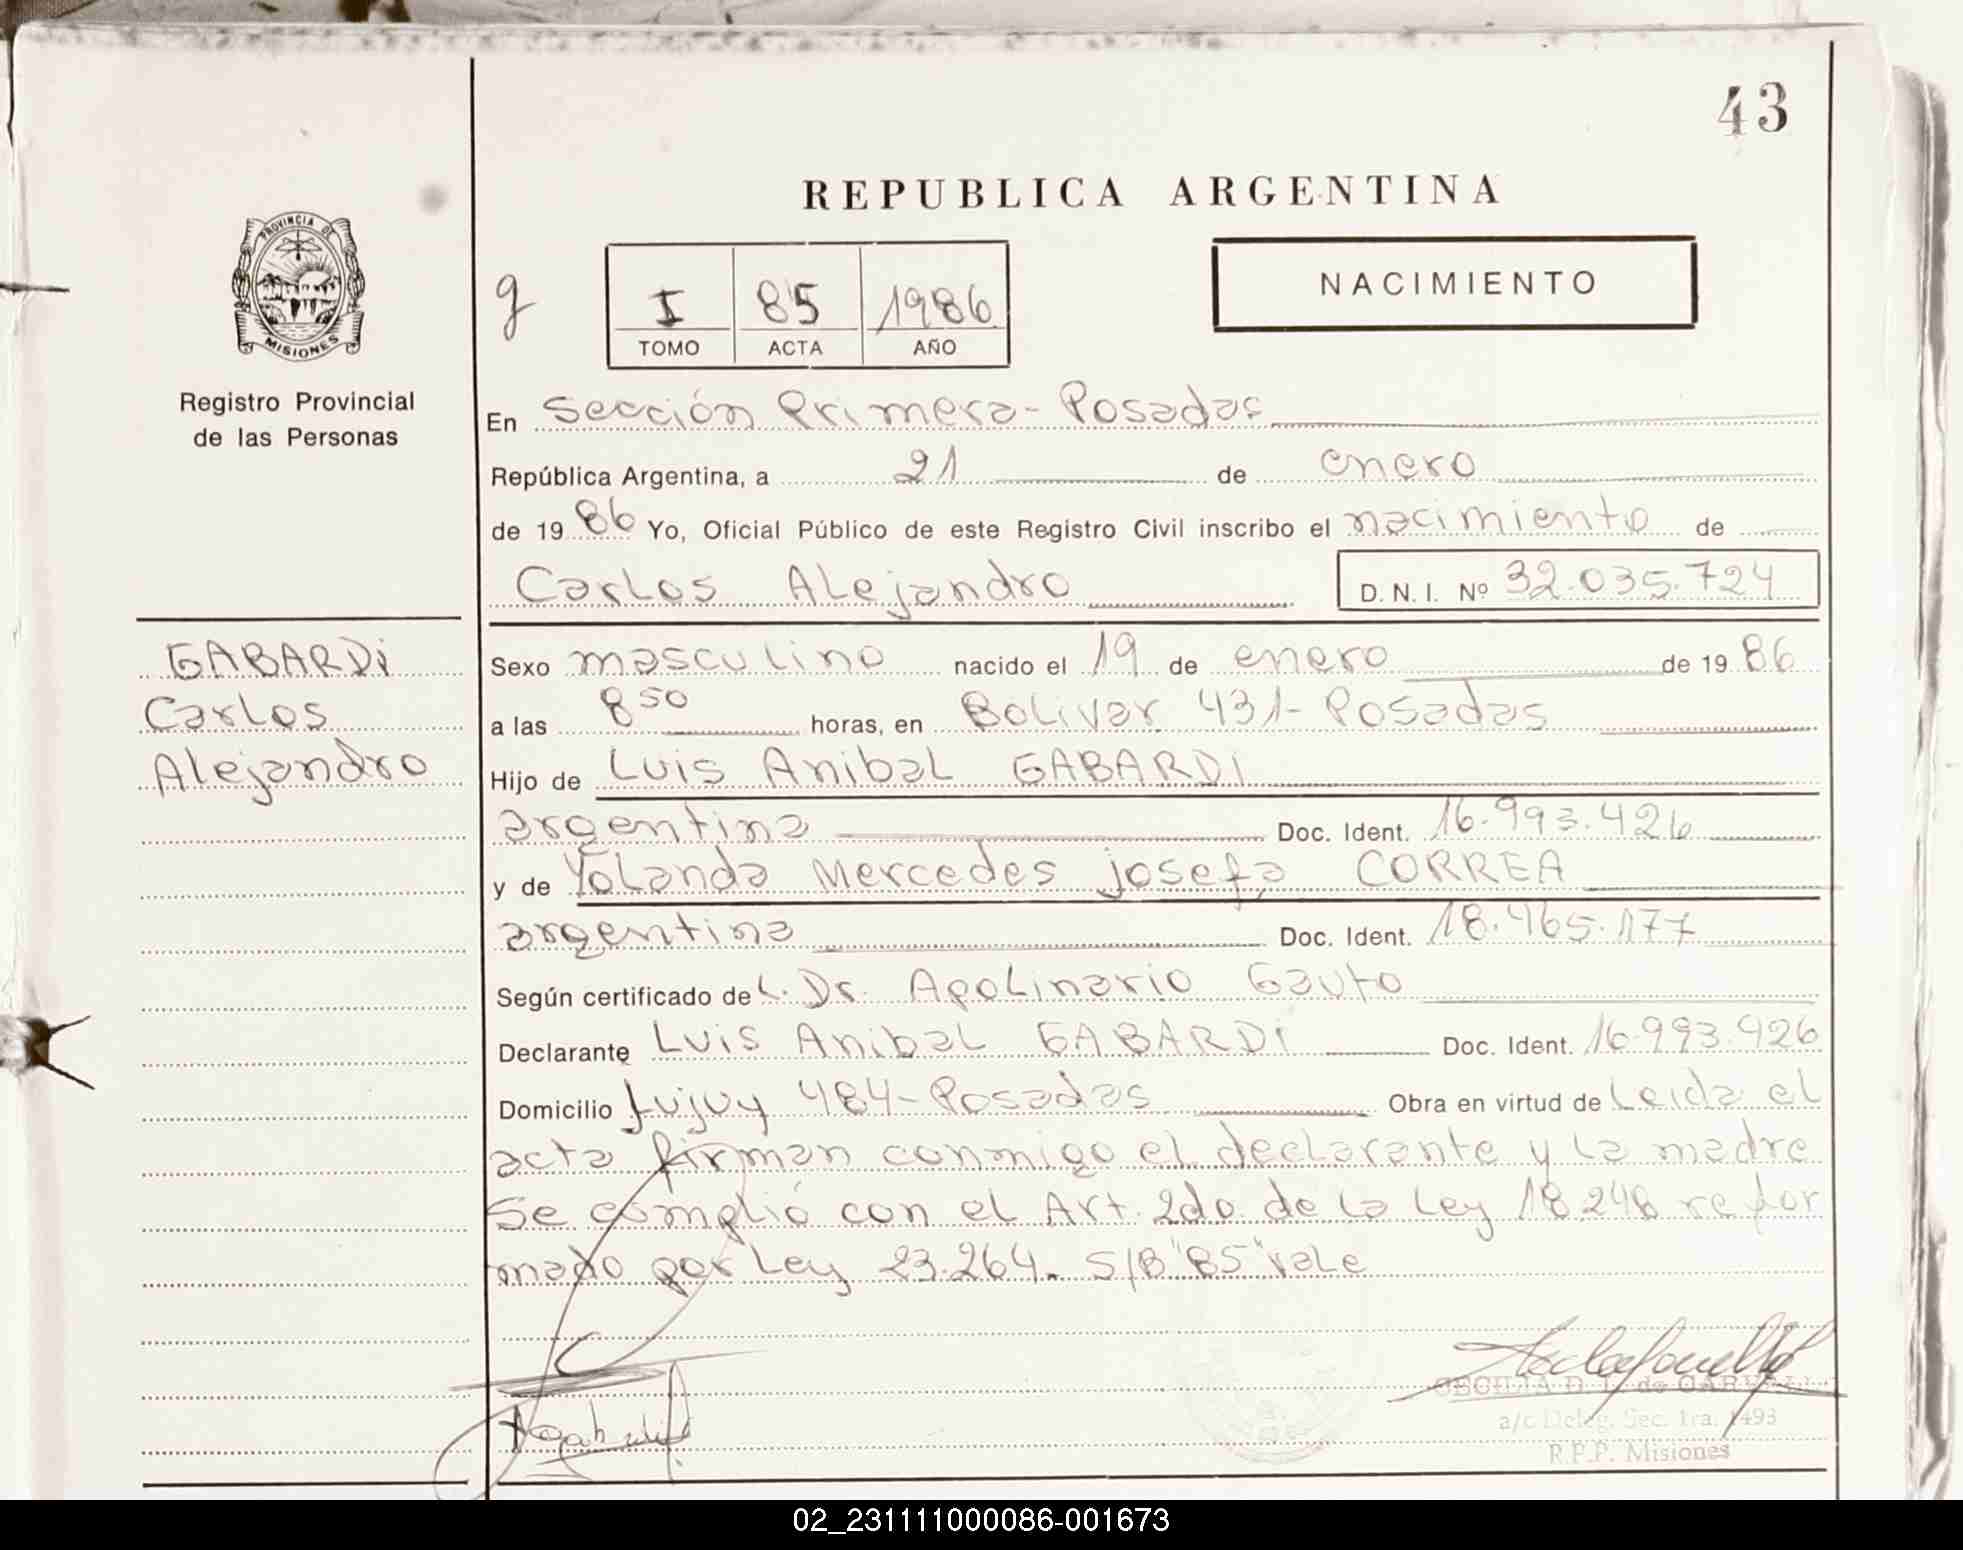 43
REPUBLICA ARGENTINA
PROVINCIA DE
MISIONES
Registro Provincial
de las Personas
g
I 85 1986
TOMO ACTA AÑO
NACIMIENTO
En Sección Primera - Posadas
República Argentina, a 21 de enero
de 19 86 Yo, Oficial Público de este Registro Civil inscribo el nacimiento de
Carlos Alejandro D. N. I. Nº 32.035.724
GABARDI
Carlos
Alejandro
Sexo masculino nacido el 19 de enero de 19 86
a las 8 50 horas, en Bolivar 431 - Posadas
Hijo de Luis Anibal GABARDI
argentina Doc. Ident. 16.993.426
y de Yolanda Mercedes Josefa CORREA
argentina Doc. Ident. 18.465.177
Según certificado de L. Dr. Apolinario Gauto
Declarante Luis Anibal GABARDI Doc. Ident. 16.993.926
Domicilio Jujuy 484 - Posadas Obra en virtud de Leida el
acta firman conmigo el declarante y la madre
Se cumplió con el Art. 2do. de la Ley 18.248 refor
mado por Ley 23.264. S/B "85" vale
CECILIA D. de
a/c Deleg. Sec. 1ra. 1493
R.P.P. Misiones
02_231111000086-001673